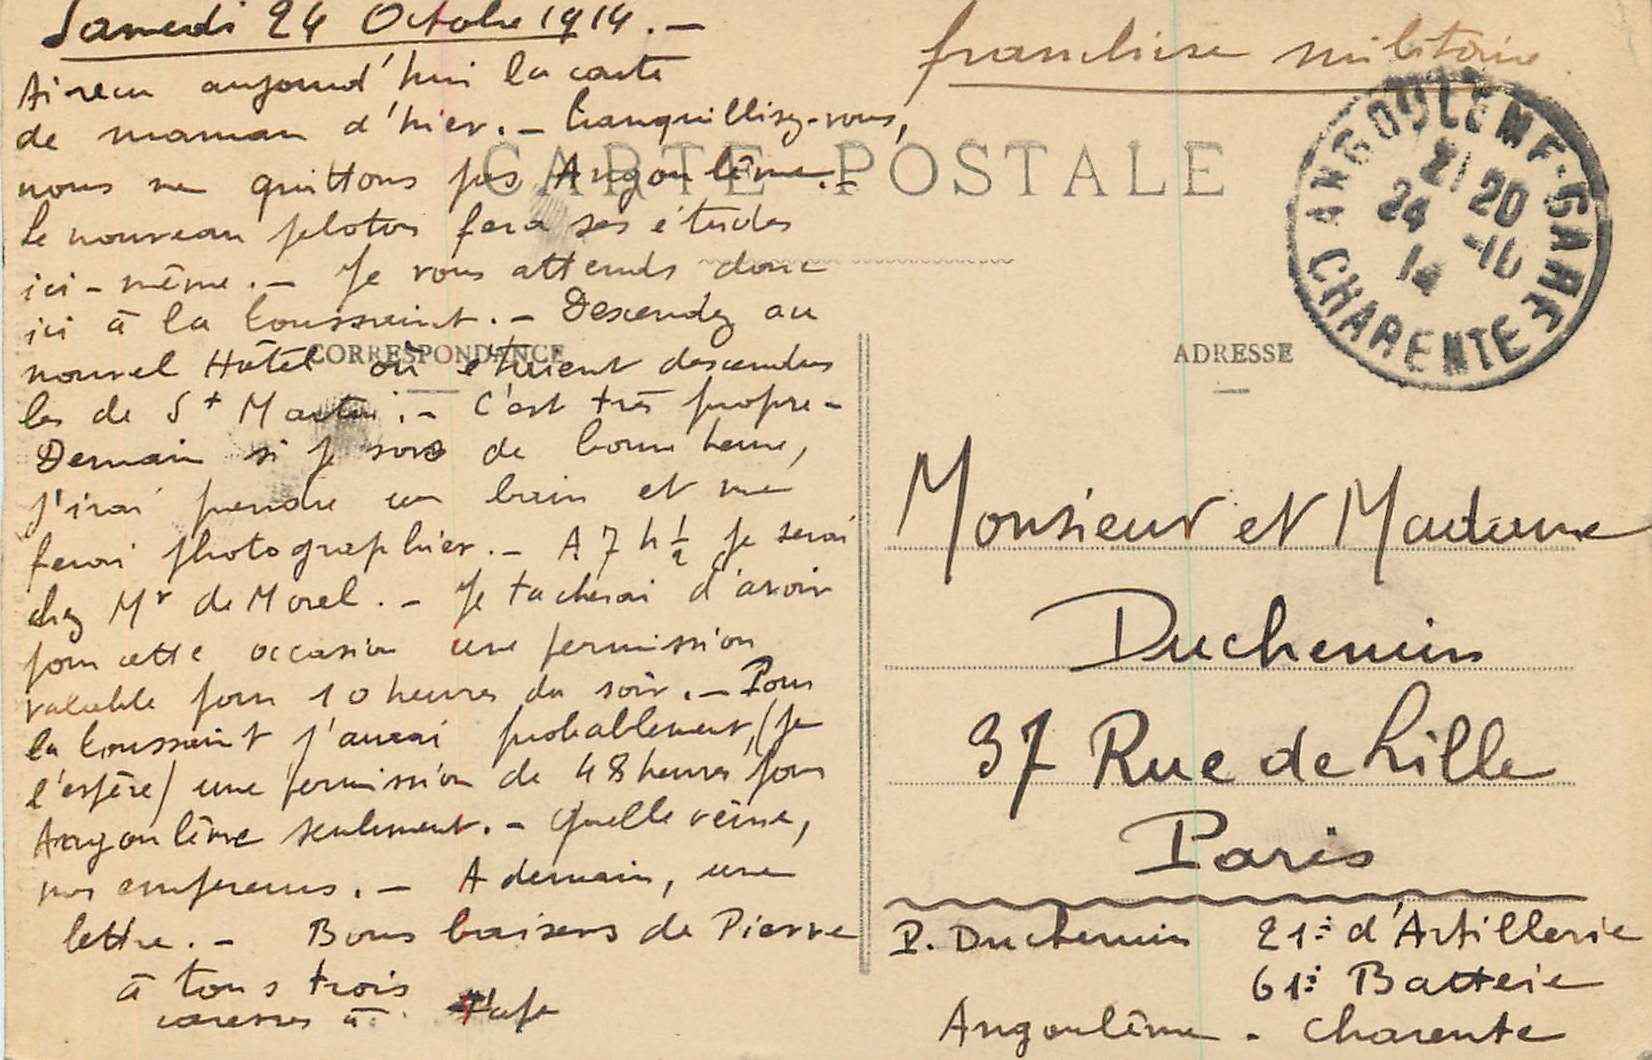 Samedi 24 Octobre 1914. –
Ai reçu aujourd'hui la carte
de maman d'hier. – Tranquillisez-vous,
nous ne quittons pas Angoulême. –
Le nouveau peloton fera ses études
ici-même. – Je vous attends donc
ici à la Toussaint. – Descendez au
nouvel Hôtel où étaient descendus
les de St Martin. – C'est très propre –
Demain si je sors de bonne heure,
j'irai prendre un bain et me
ferai photographier. – A 7 h ½ je serai
chez Mr de Morel. – Je tacherai d'avoir
pour cette occasion une permission
valable pour 10 heures du soir. – Pour
la Toussaint j'aurai probablement, (je
l'espère) une permission de 48 heures pour
Angoulême seulement. – Quelle veine,
A demain, une
lettre. – Bons baisers de Pierre
à tous trois
caresses à
franchise militaire.
CARTE POSTALE
CORRESPONDANCE
ADRESSE
ANGOULEME-GARE
21 20
24 -10
14
CHARENTE
Monsieur et Madame
Duchemin
37 Rue de Lille
Paris
P. Duchemin 21e d'Artillerie
61e Batterie
Angoulême - Charente